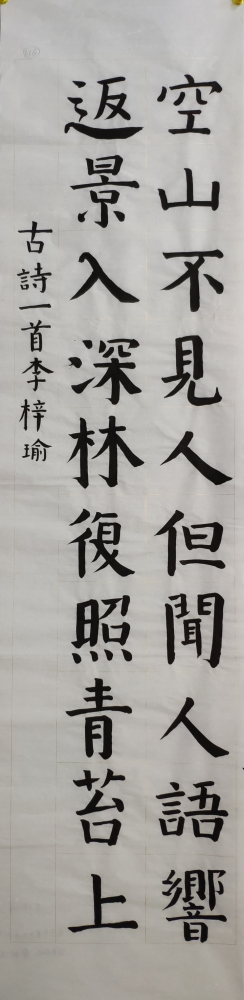 空山不見人但聞人語響
返景入深林復照青苔上
古詩一首李梓瑜